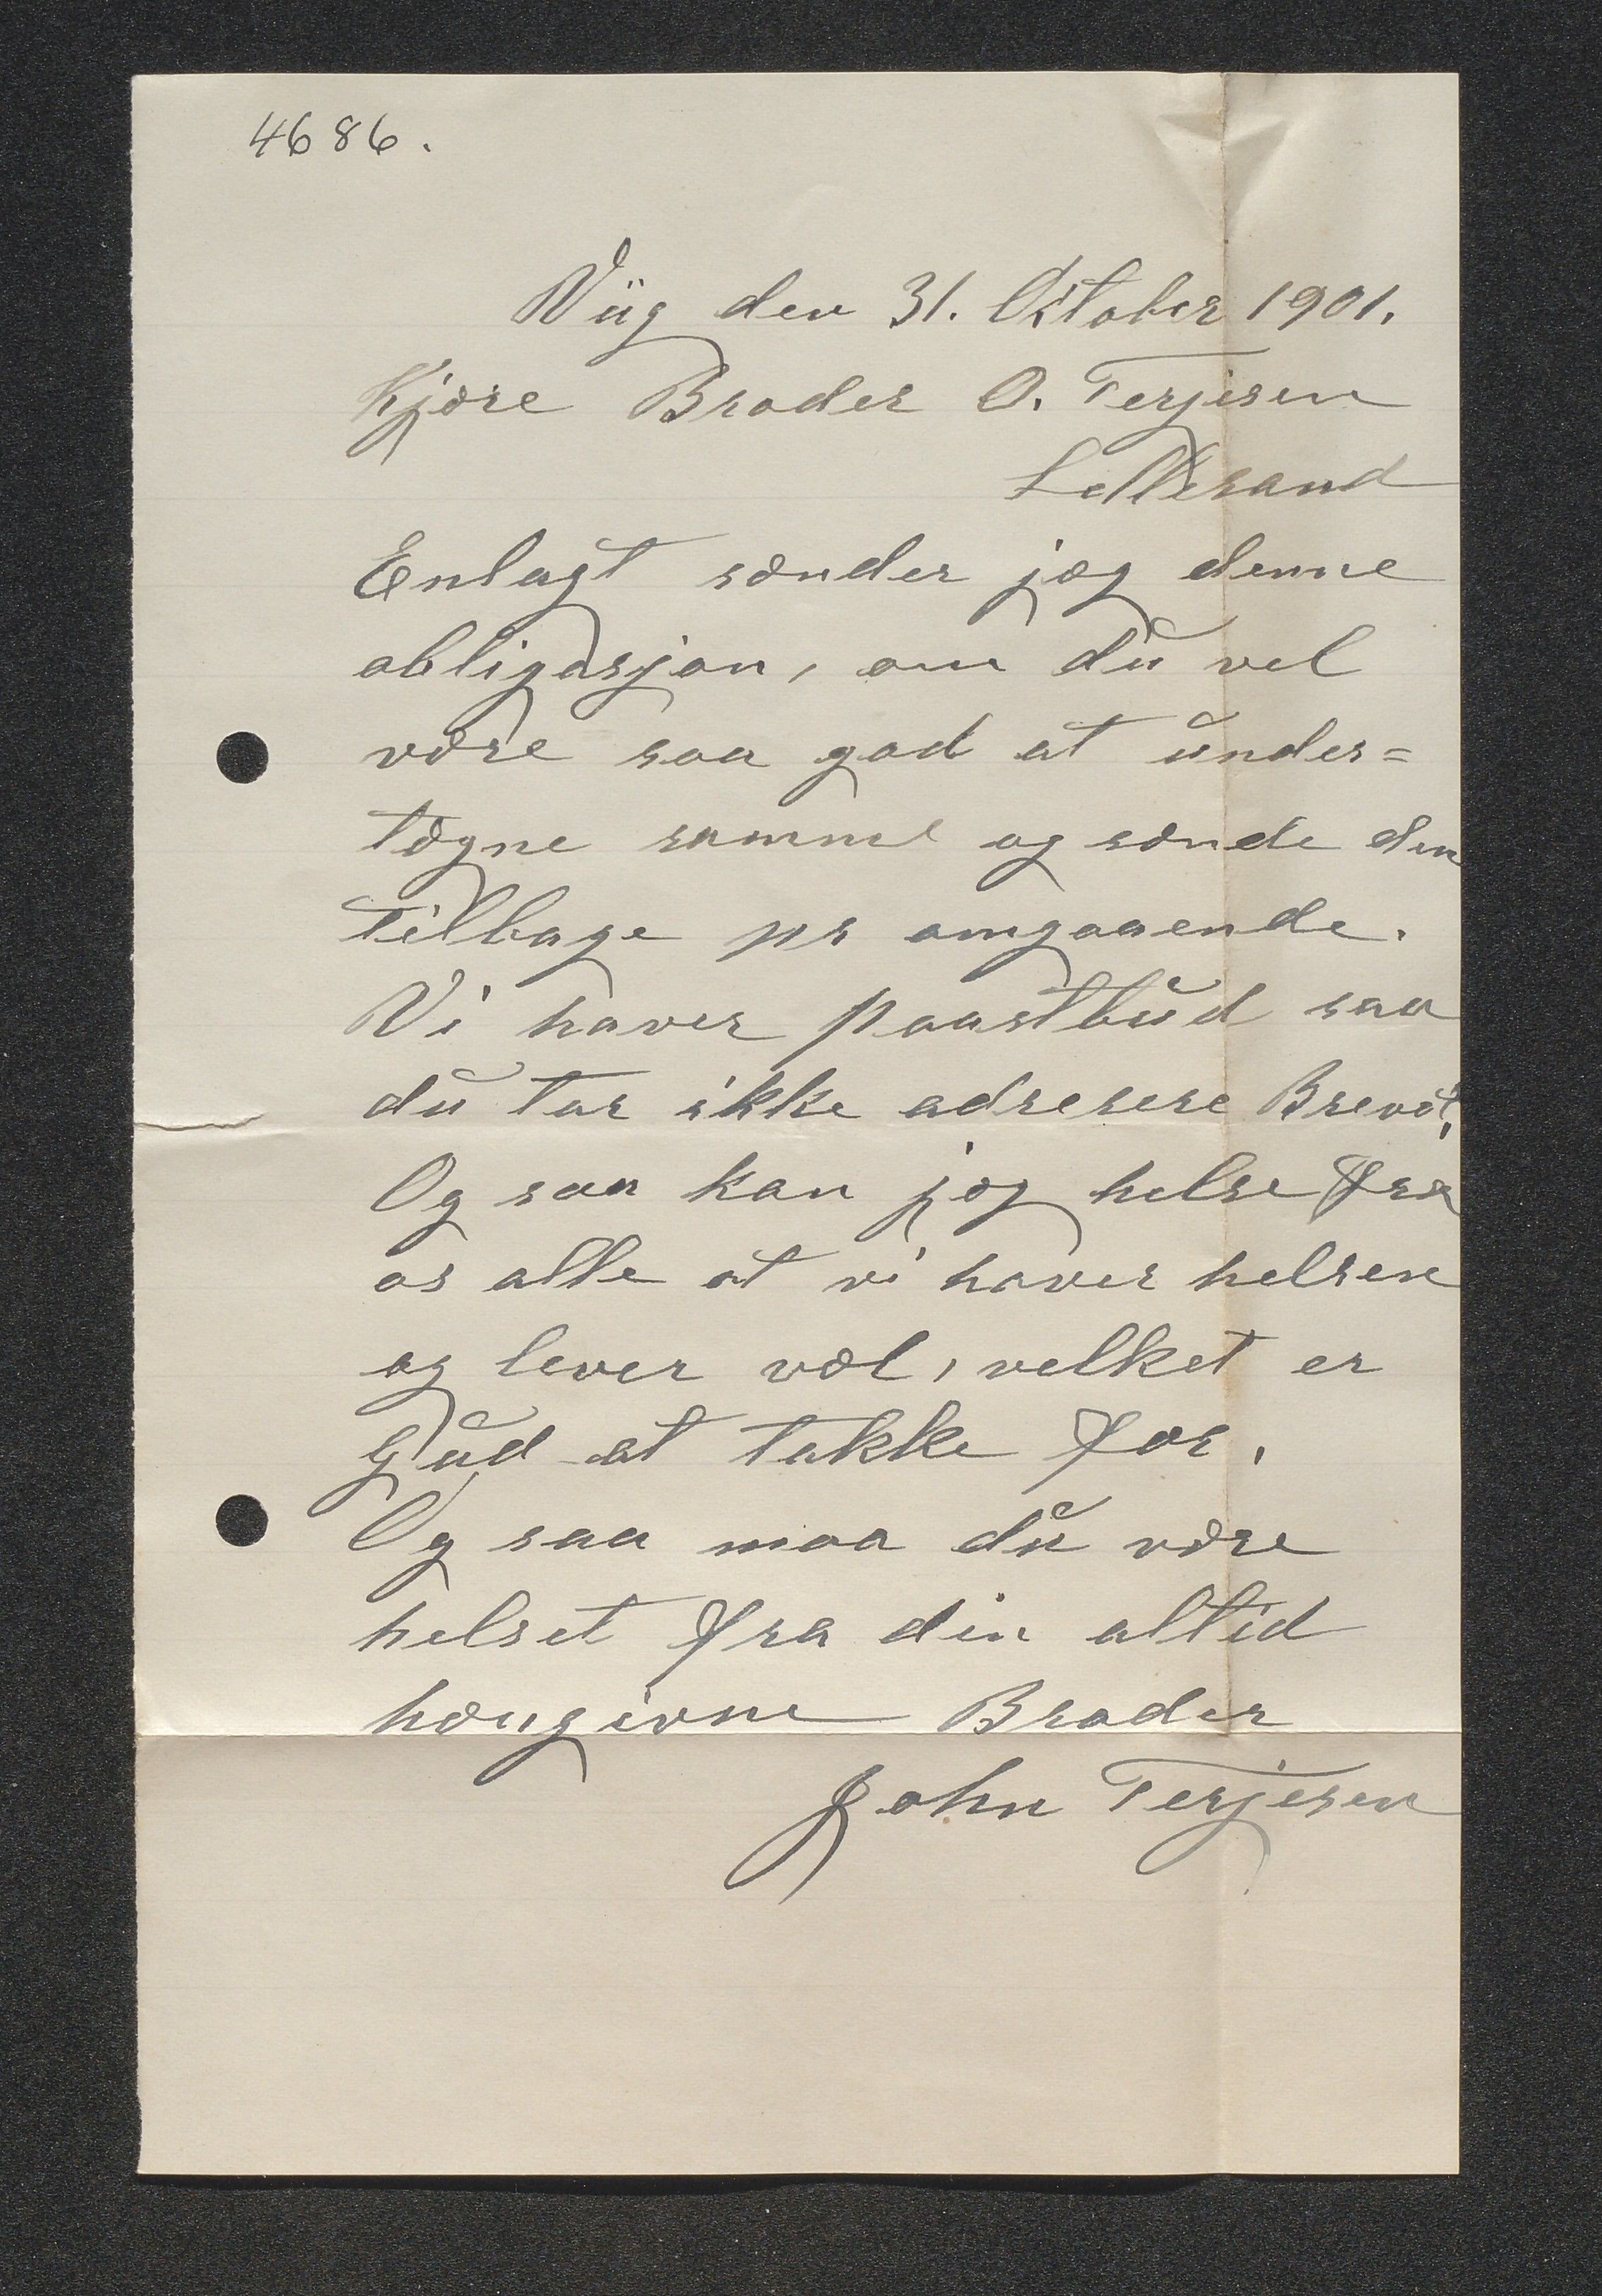 4686.
Viig den 31. Oktober 1901.
Kjøre Broder O. Terjesen
Lillesand
Enlagt sænder jæg denne
obligasjon, om du vel
være saa god at under=
tægne samme og sænde den
tilbage pr omgaaende.
Vi haver paastbud saa
du tar ikke adresere Brevæt,
Og saa kan jæg helse fra
os alle at vi haver helsen
og lever væl, velket er
Gud at takke for.
Og saa maa du være
helset fra din altid
hængivne Broder
John Terjesen